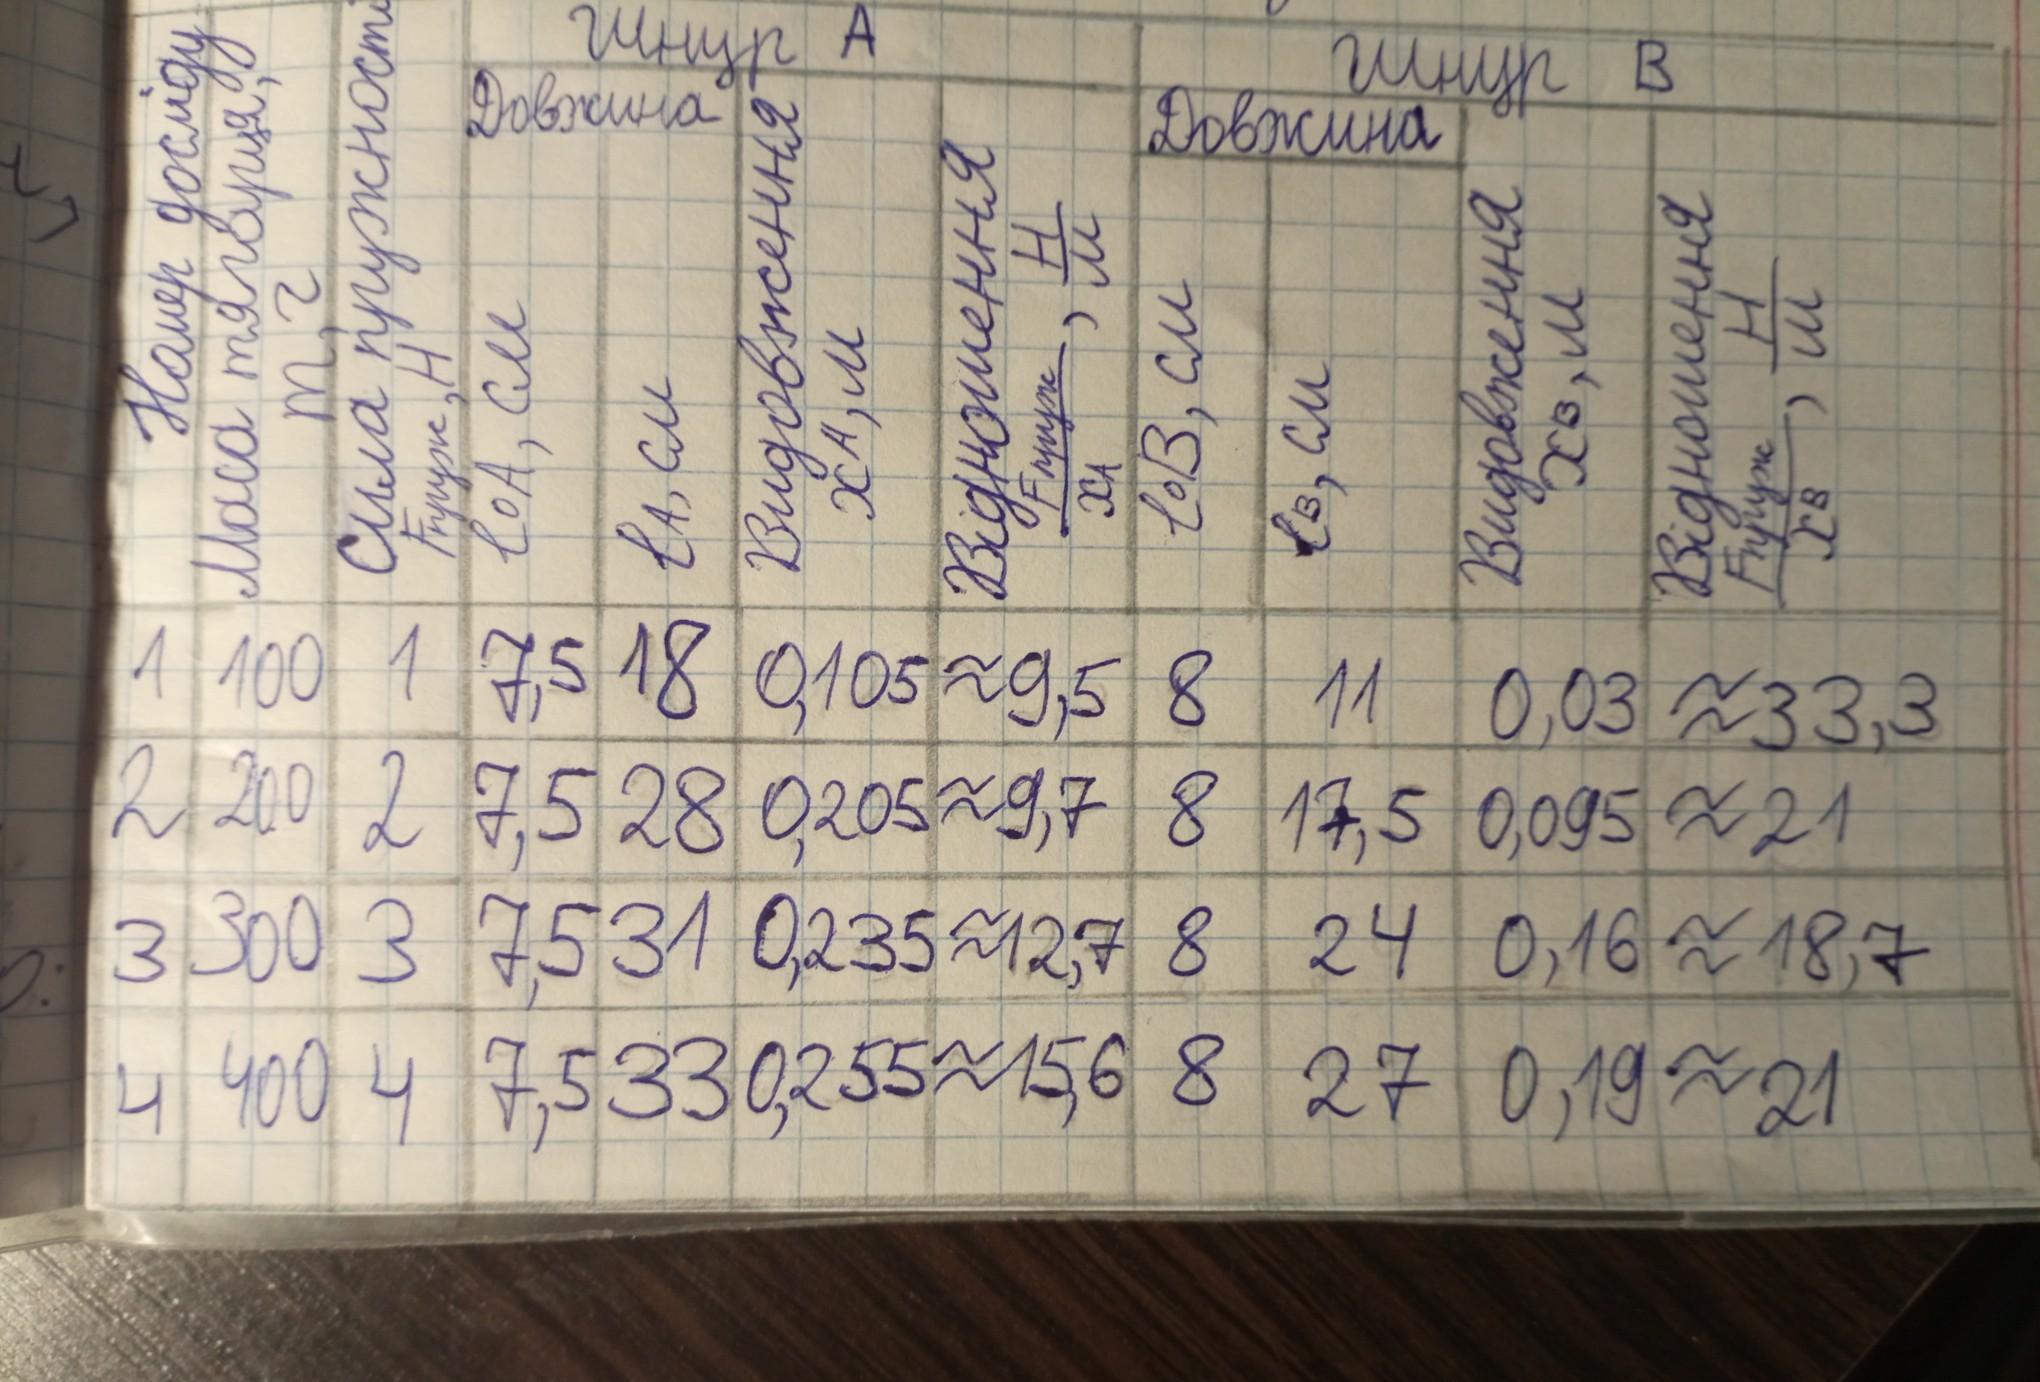 Шнур А Шнур В
Номер досліду
Маса тягарця,
m, г
Сила пружності
Fпруж, Н
Довжина
l0А, см
lА, см
Видовження
xА, м
Відношення
Fпруж/xА, Н/м
Довжина
l0В, см
lВ, см
Видовження
xВ, м
Відношення
Fпруж/xВ, Н/м
1 100 1 7,5 18 0,105 ≈9,5 8 11 0,03 ≈33,3
2 200 2 7,5 28 0,205 ≈9,7 8 17,5 0,095 ≈21
3 300 3 7,5 31 0,235 ≈12,7 8 24 0,16 ≈18,7
4 400 4 7,5 33 0,255 ≈15,6 8 27 0,19 ≈21